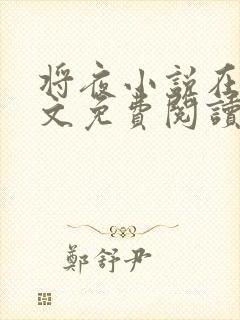 将夜小说在
文免费阅讀
鄭舒尹